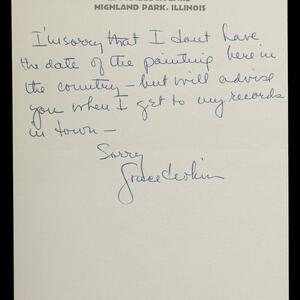 HIGHLAND PARK, ILLINOIS
I'm sorry that I dont have
the date of the painting here in
the country — but will advise
you when I get to my records
in town —
Sorry
Grace